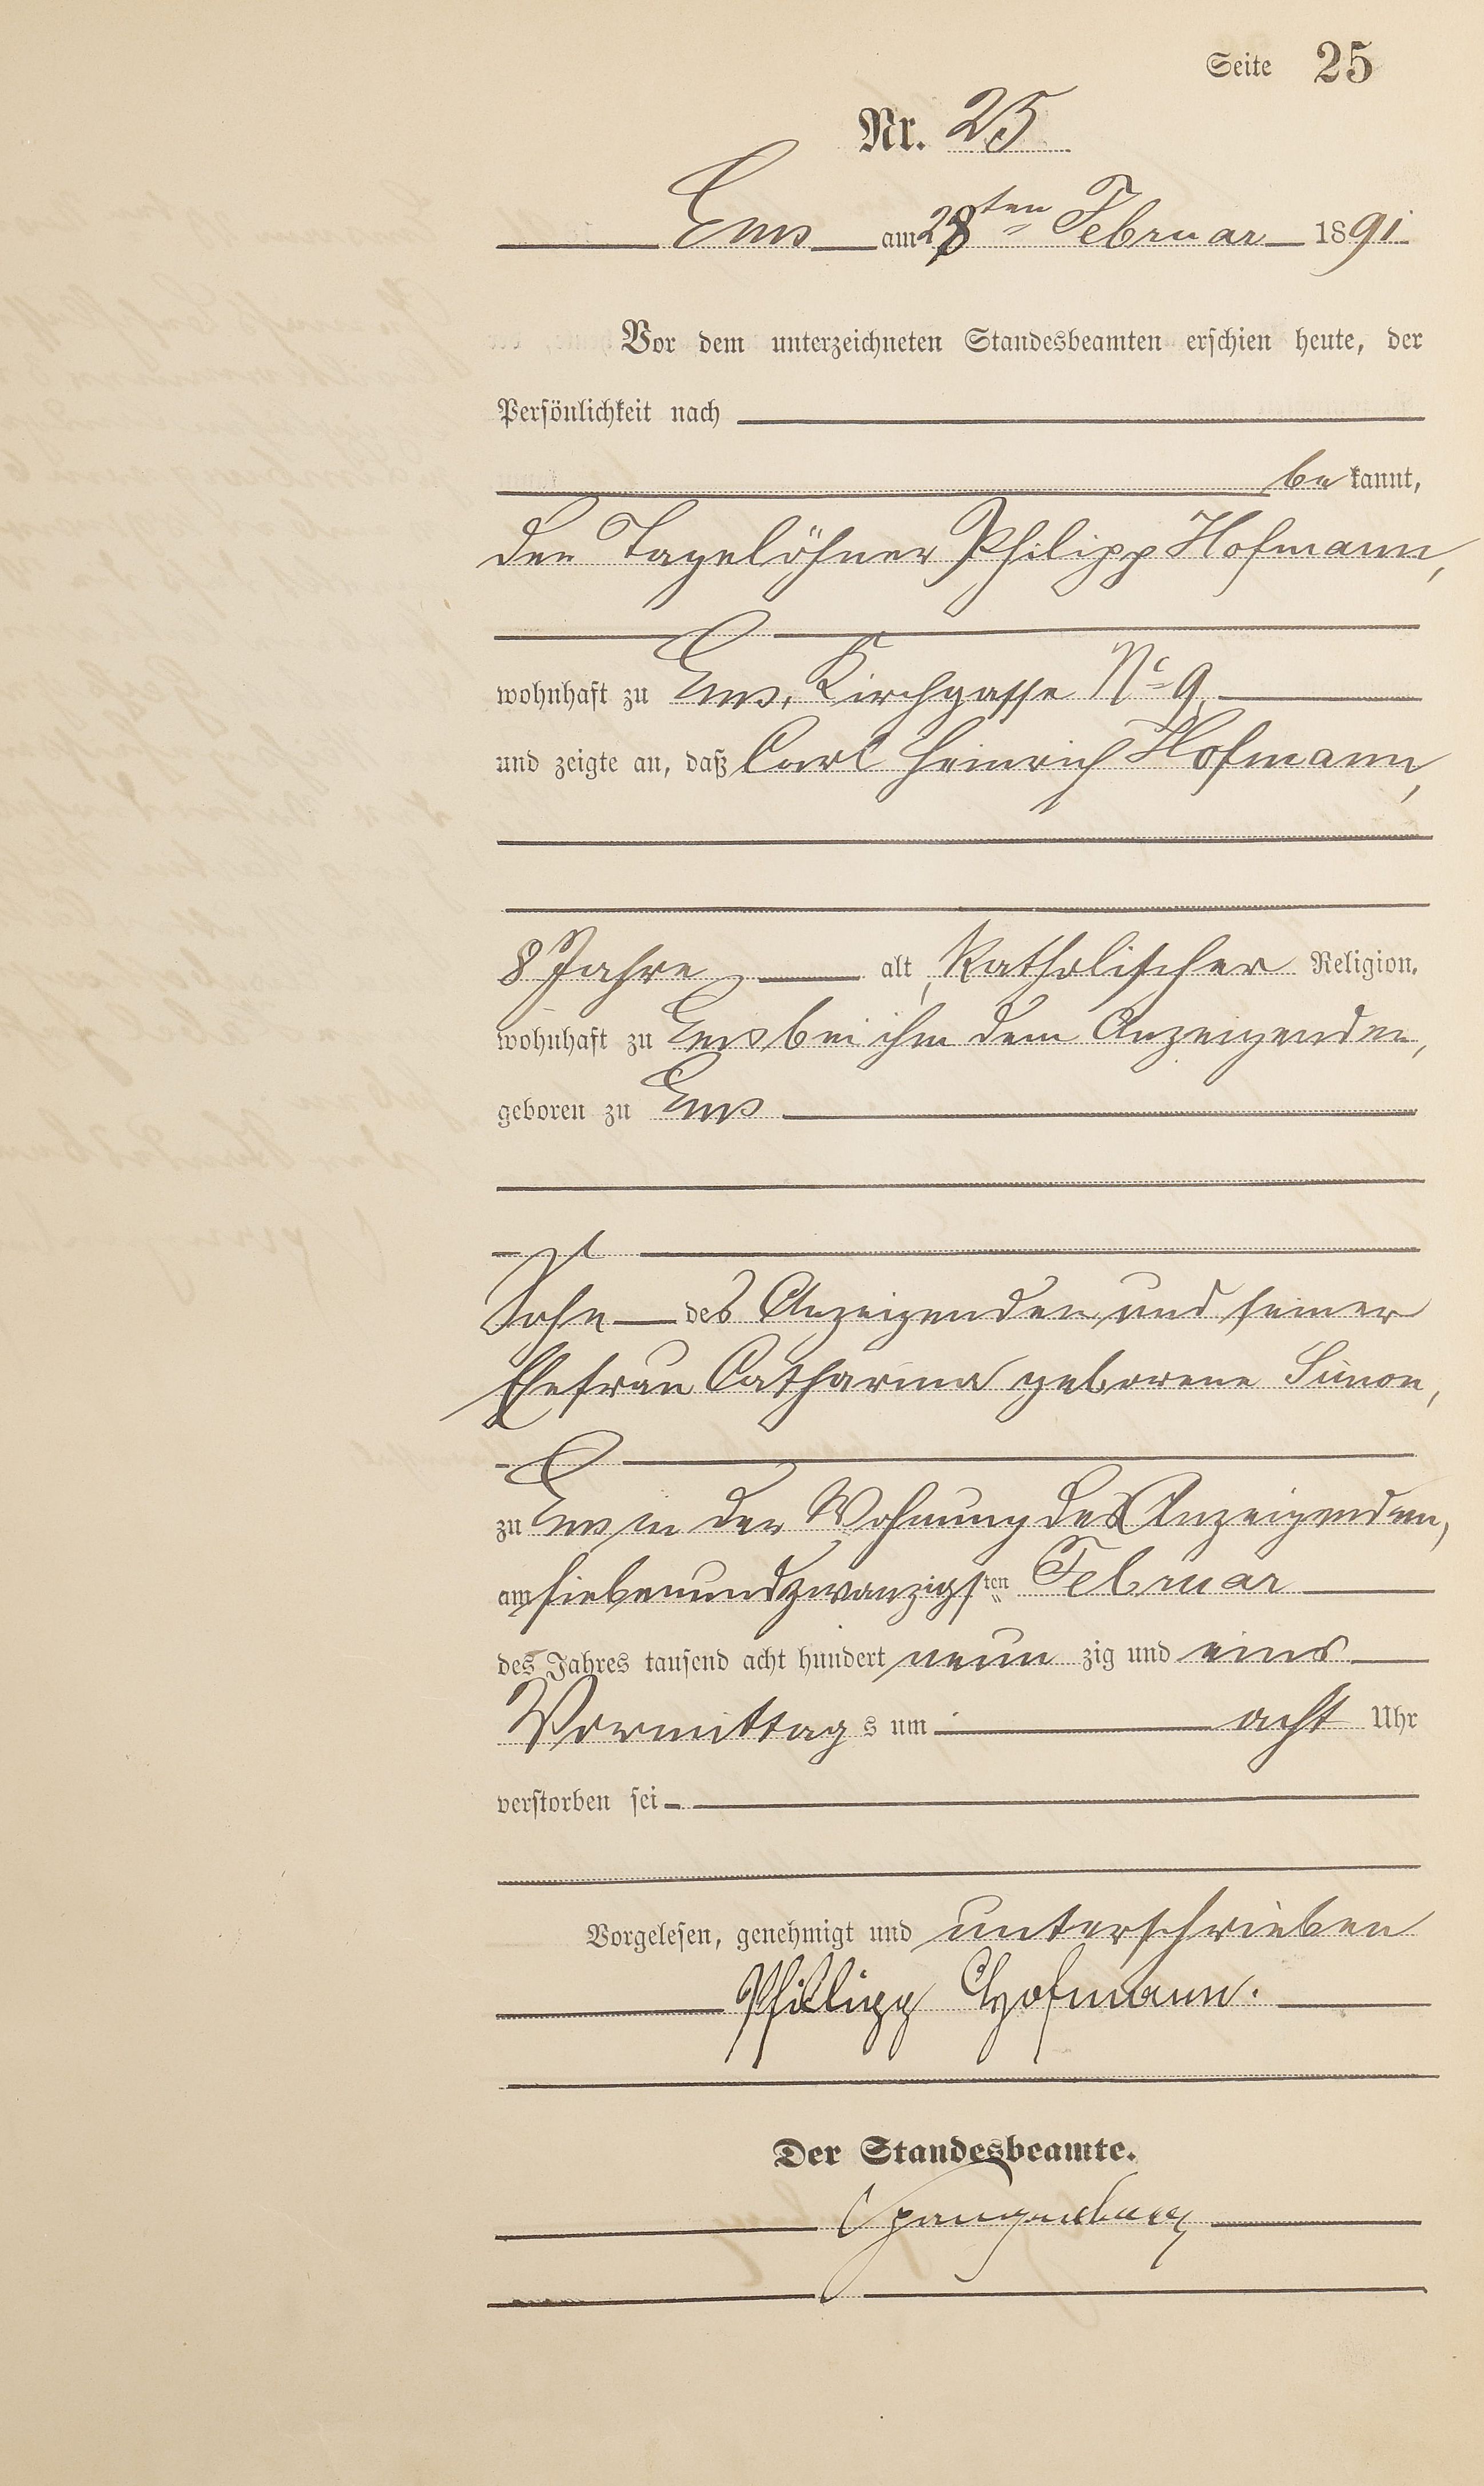 Seite 25
Nr. 25
Ems am 28ten Februar 1891
Vor dem unterzeichneten Standesbeamten erschien heute, der
Persönlichkeit nach
bekannt,
der Tagelöhner Philipp Hofmann,
wohnhaft zu Ems, Kirchgasse No 9
und zeigte an, daß Carl Heinrich Hofmann,
8 Jahre alt, katholischer Religion,
wohnhaft zu Ems bei ihm dem Anzeigenden,
geboren zu Ems
Sohn des Anzeigenden und seiner
Ehefrau Catharina geborene Simon,
zu Ems in der Wohnung des Anzeigenden,
am siebenundzwanzigsten Februar
des Jahres tausend acht hundert neunzig und eins
Vormittags um acht Uhr
verstorben sei
Vorgelesen, genehmigt und unterschrieben
Philipp Hofmann.
Der Standesbeamte.
Spangenberg